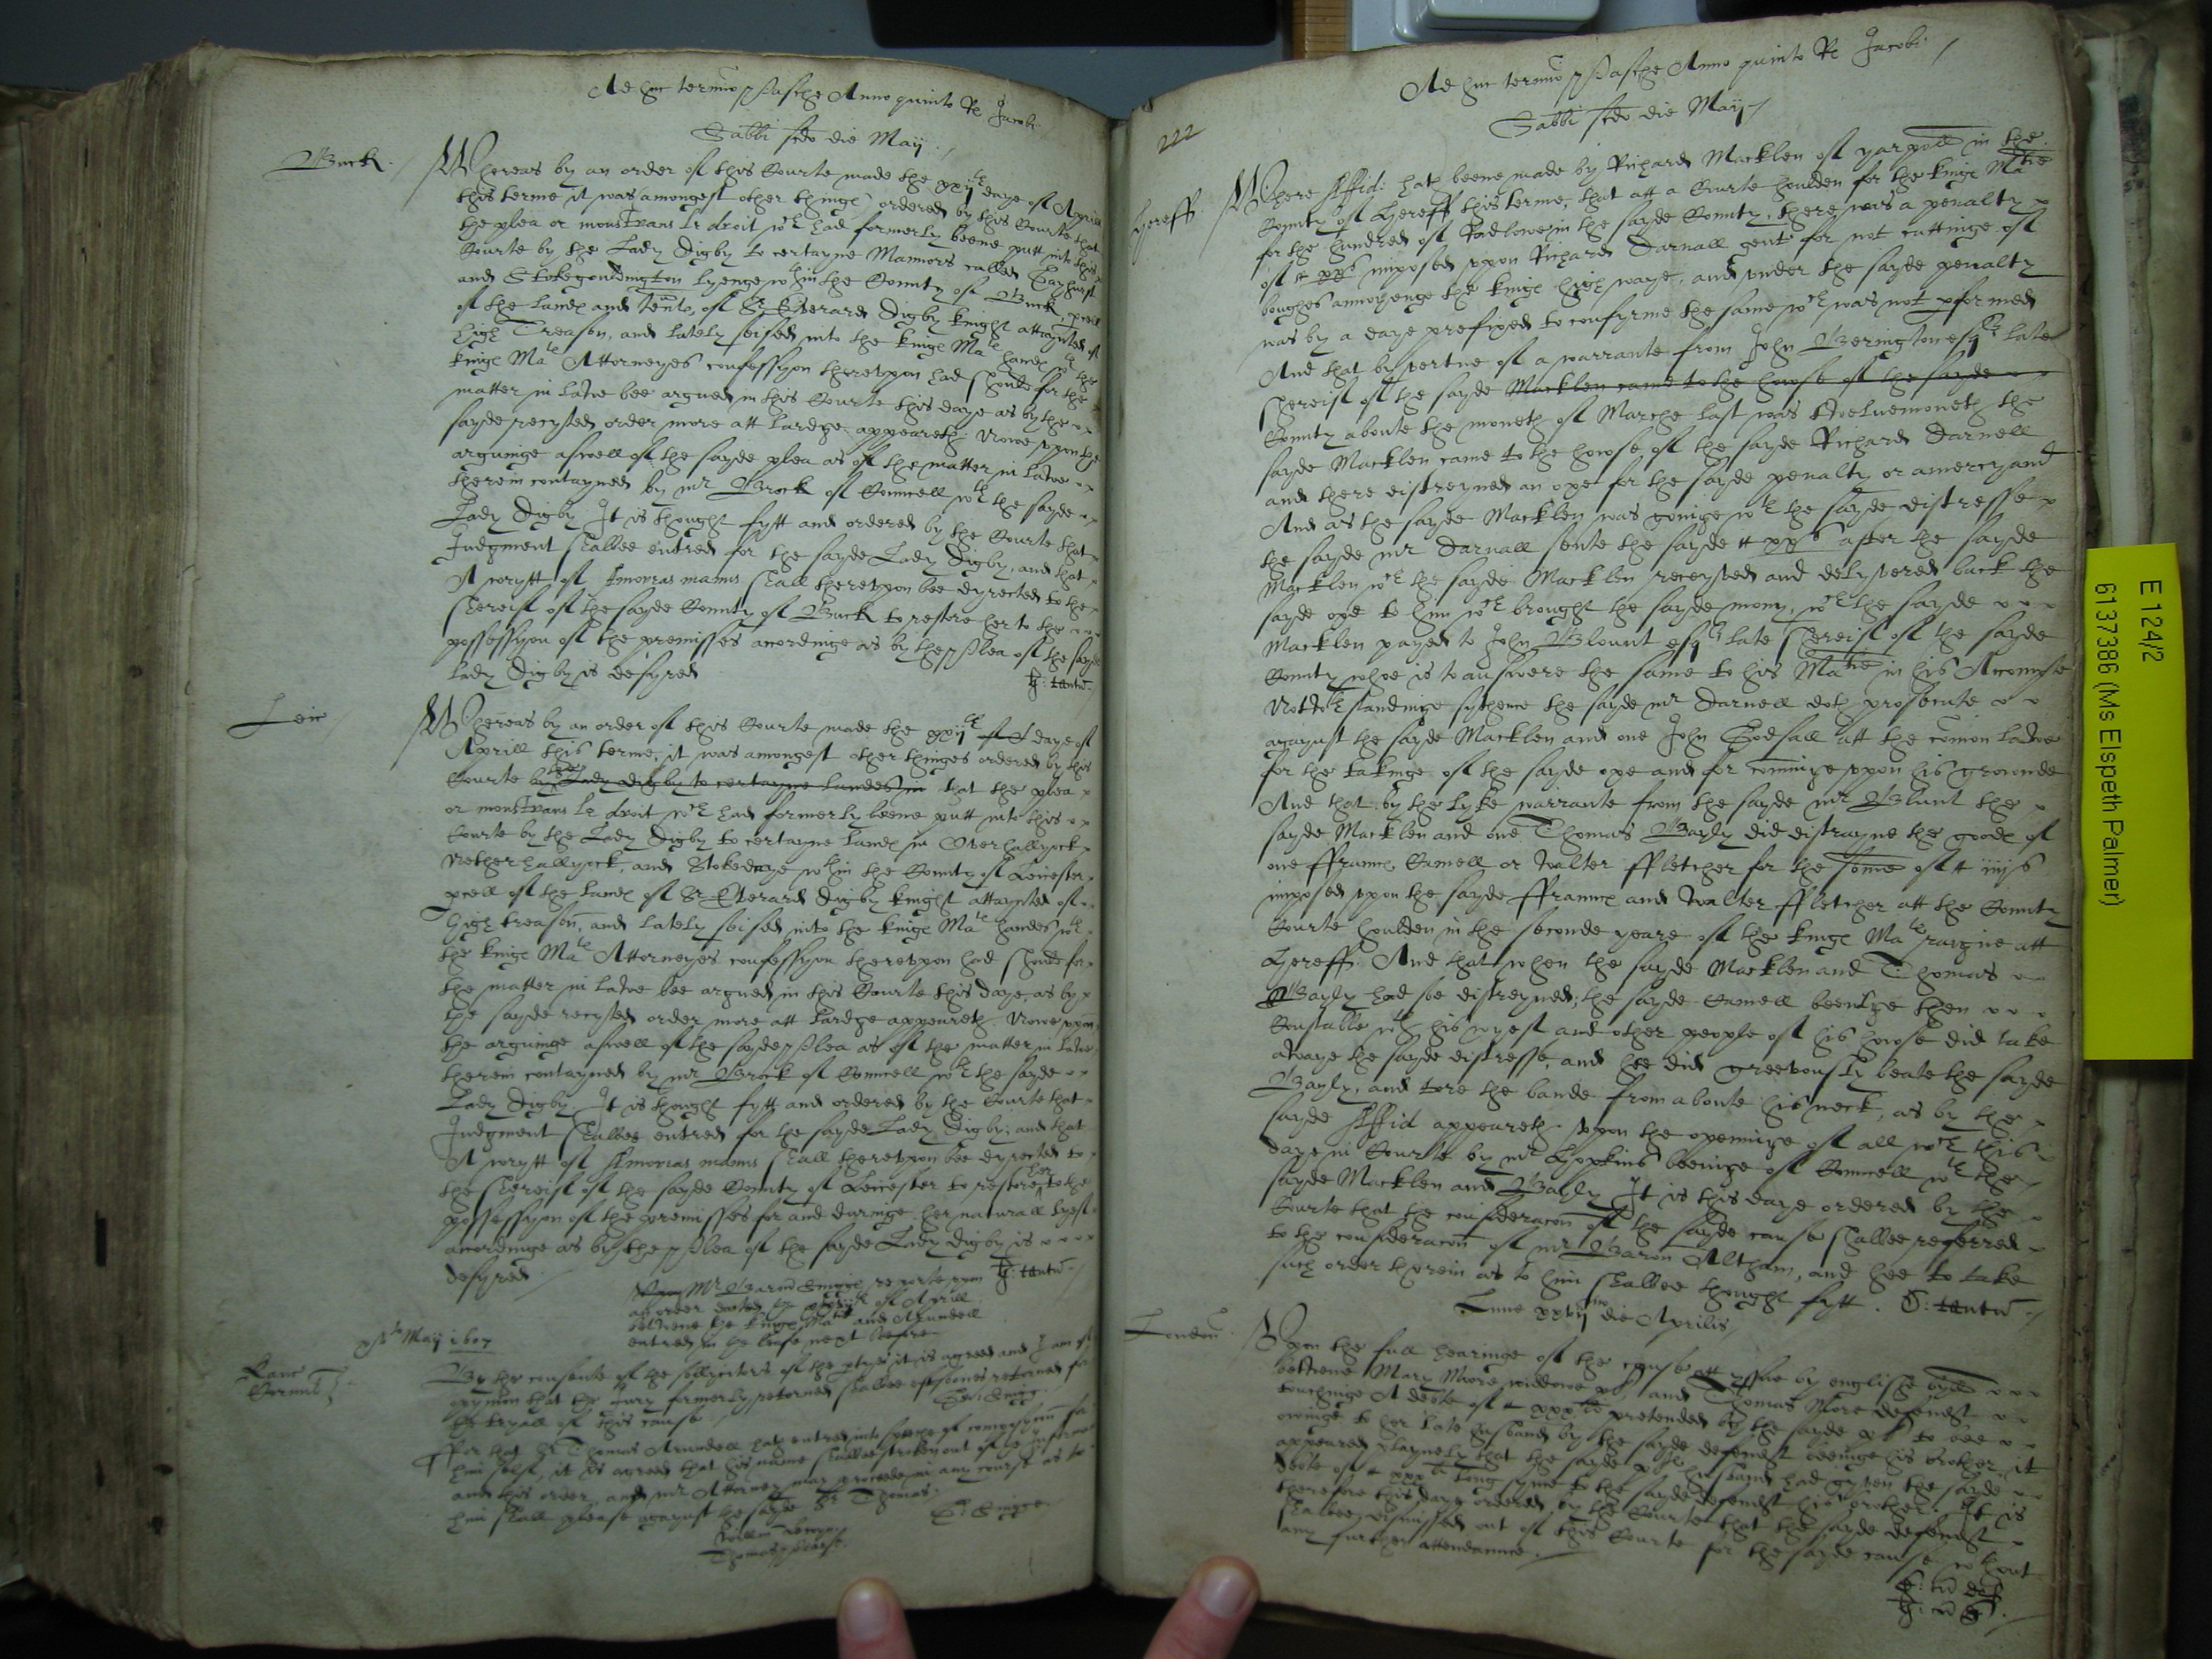 Ad huc termino Pasche Anno quinto R Jacobi
Sabbi scdo die Maij
Buck
Whereas by an order of this Courte made the xxijth daye of Aprill
this terme it was amongest other thinge ordered by this Courte that
the plea or monstrans le droit wch had formerly beene putt into this
Courte by the Lady Digby to certayne Mannors called Gayhurst
and Stokegouldington lyenge wthin the County of Buck, pcell
of the Lande and tente, of Sr Everard Digby knight attaynted of
high Treason, and lately seised into the kinge Mate hande wth the
kinge Mate Attorneyes confessyon therevpon had should for the
matter in Lawe bee argued in this Courte this daye as by the
sayde recyted order more att Lardge appeareth. Nowe vppon the
arguinge aswell of the sayde plea as of the matter in Lawe
therein contayned by mr Brock of Councell wth the sayde
Lady Digby It is thought fytt and ordered by the Courte that
Judgment shalbee entred for the sayde Lady Digby, and that
A wrytt of Amovias manus shall therevpon bee dyrected to the
Shereif of the sayde County of Buck to restore her to the
possessyon of the premisses accordinge as by the Plea of the sayde
Lady Digby is desyred
Leic
Whereas by an order of this Courte made the xxijth of daye of
Aprill this terme, it was amongest other thinges ordered by this
Courte by the Lady Digby to certayne Landes in that the plea
or monstrans le droit wch had formerly beene putt into this
Courte by the Lady Digby to certayne Lande in Overhallyock
Netherhallyock, and Stokedrye wthin the County of Leicester
pcell of the Lande of Sr Everard Digby knight attaynted of
High treason, and lately seised into the kinge Mate handes wth
the kinge Mate Attorneyes confessyon therevpon had should for
the matter in Lawe bee argued in this Courte this daye, as by
the sayde recyted order more att Lardge appeareth. Nowe vppon
the arguinge aswell of the sayde Plea as of the matter in Lawe
therein contayned by mr Brock of Councell wth the sayde
Lady Digby It is thought fytt and ordered by the Courte that
Judgment shalbee entred for the sayde Lady Digby, and that
A wrytt of Amovias manus shall therevpon bee dyrected to
the Shereif of the sayde County of Leicester to restore her to the
possessyon of the premisses for and duringe her naturall lyef
accordinge as by the Plea of the sayde Lady Digby is
desyred
Mr Baron Snigge reporte vpon
an order dated the of Aprill
betwene the kinge Matie and Arundell
entred in the leafe next before
Maij 1607
By the consente of the sollycitors of the ptyes it is agreed and I am of
opynion that the Jury formerly retorned shalbee eftsoones retorned for
the tryall of this cause
For that Sr Thomas Arundell hath entred into speech of composycion for
him self, it is agreed that his name shalbe stroken out of the Informacon
and this order, and mr Attorney may proceede in any course as to
him shall please against the sayde Sr Thomas.
Ad huc termino Pasche Anno quinto R Jacobi
Sabbi scdo die Maij
222
Hereff
Where Affid: hath beene made by Richard Macklen of yarpoll in the
County of Hereff this terme, that att a Courte houlden for the kinge Matie
for the hundred of in the sayde County, there was a penalty
of xxs imposed vppon Richard Darnall gent for not cuttinge of
boughes annoyenge the kinge high waye, and vnder the sayde penalty
was by a daye prefixed to confyrme the same wch was not pformed
And that by vertue of a warrante from John Berington esqr late
Shereif of the sayde Macklen came to the howse of the sayde
County aboute the moneth of Marche last was twelvemoneth the
sayde Macklen came to the howse of the sayde Richard Darnell
and there distreyned an oxe for the sayde penalty or amercyand
And as the sayde Macklen was goinge wth the sayde distresse
the sayde mr Darnall sente the sayde xxs after the sayde
Macklen wch the sayde Macklen receyved and delyvered back the
sayde oxe to him wch brought the sayde mony, wch the sayde
Macklen payed to John Blount esqr late Shereif of the sayde
County whoe is to answere the same to his Matie in his Accompte
Notwthstandinge sythence the sayde mr Darnell doth prosecute
against the sayde Macklen and one John Godsall att the comon Lawe
for the takinge of the sayde oxe and for comminge vppon his grounde
And that by the lyke warrante from the sayde mr Blunt the
sayde Macklen and one Thomas Bayly did distrayne the goode of
one Fraunce Camell or Walter Fletcher for the some of iiijs
imposed vpon the sayde Fraunce and Walter Fletcher att the County
Courte houlden in the seconde yeare of the kinge Mate raigne att
Hereff. And that when the sayde Macklen and Thomas
Bayly had soe distreyned, the sayde Camell beeinge then
Constable wth his wyef and other people of his howse did take
awaye the sayde distresse, and hee did greevously beate the sayde
Bayly, and tore the bande from aboute his neck, as by the
sayde Affid appeareth. Vpon the openinge of all wch this
daye in Courte by mr Hopkins beeinge of Councell wth the
sayde Macklen and Bayly It is this daye ordered by the
Courte that the consideracon of the sayde cause shalbee referred
to the consideracon of mr Baron Altham, and hee to take
such order therein as to him shalbee thought fytt.
Lune xxvijmo die Aprilis
London
Vpon the full hearinge of the cause att yssue by englishe byll
betwene Mary Moore widdowe pl and Thomas More defendt
touchinge A debte of xxxli pretended by the sayde pl to bee
owinge to her late husband by the sayde defendt beeinge his brother, it
appeared playnely that the sayde pl husband had gyven the sayde
debte of xxxli long syne to the sayde defendt his brother. It is
therefore this daye ordered by the Courte that the sayde defendt
shalbee dismissed out of this Courte for the sayde cause wthout
any further attendaunce.
E 124/2
6137386 (Ms Elspeth Palmer)